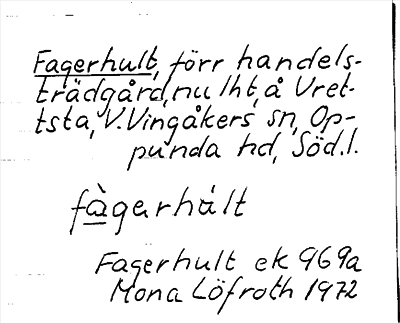 Fagerhult, förr handels-
trädgård, nu lht, å Vret-
tsta, V. Vingåkers sn, Op-
punda hd, Söd. l.
fàgerhált
Fagerhult ek 969a
Mona Löfroth 1972